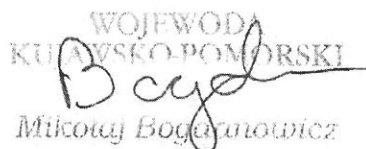 WOJEWODA
KUJAWSKO-POMORSKI
Mikołaj Bogdanowicz